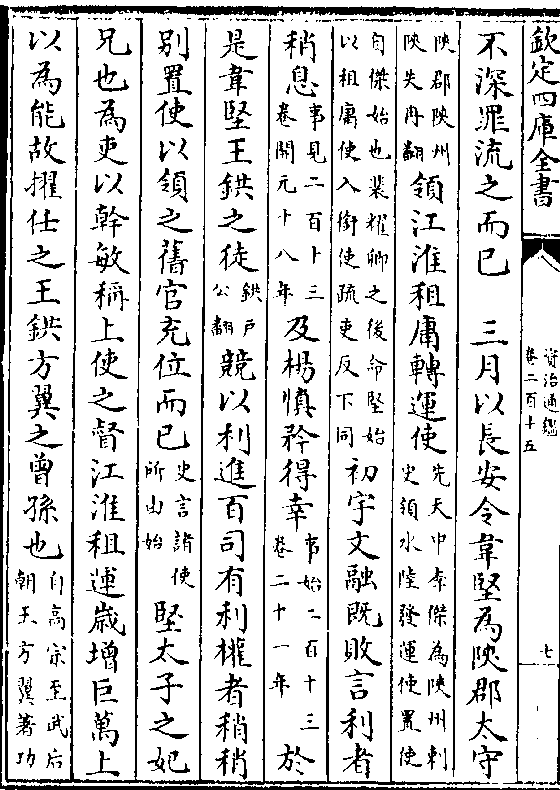 欽定四庫全書
資治通鑑
卷二百十五
七
不深罪流之而已　三月以長安令韋堅為陜郡太守
陜郡陜州
陜失冉翻
領江淮租庸轉運使
先天中李傑為陜州刺
史領水陸發運使置使
自傑始也裴耀卿之後命堅始
以租庸使入銜使疏吏反下同
初宇文融既敗言利者
稍息
事見二百卜三
卷開元十八年
及楊慎矜得幸
事始二百十三
卷二十一年
於
是韋堅王鉷之徒
鉷戶
公翻
競以利進百司有利權者稍稍
别置使以領之舊官充位而已
史言諸使
所由始
堅太子之妃
兄也為吏以幹敏稱上使之督江淮租運歲增巨萬上
以為能故擢任之王鉷方翼之曾孫也
自高宗至武后
朝王方翼著功